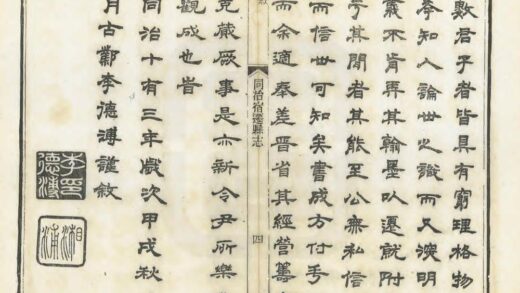 數君子者皆具有窮理格物
學知人論世之識而又深明
義不肯弄其翰墨以遷就附
于其間者其能至公無私信
而信世可知矣書成方付手
而余適奉差晉省其經營籌
同治宿遷縣志
四
克蕆厥事是亦新令尹所樂
觀成也旹
同治十有三年歲次甲戌秋
月古鄮李德溥謹敘
李印德溥
湘浦